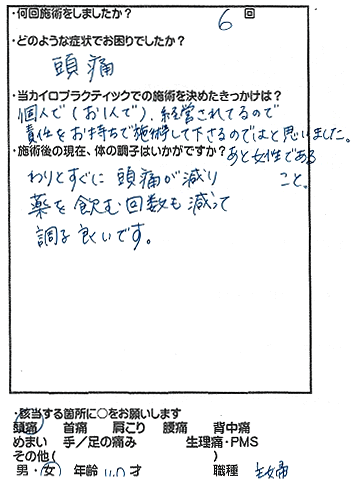 ・何回施術をしましたか? 6 回
・どのような症状でお困りでしたか?
頭痛
・当カイロプラクティックでの施術を決めたきっかけは?
個人で(お1人で)、経営されてるので
責任をお持ちで施術して下さるのではと思いました。
・施術後の現在、体の調子はいかがですか? あと女性である
こと。
わりとすぐに頭痛が減り
薬を飲む回数も減って
調子良いです。
・該当する箇所に○をお願いします
頭痛 首痛 肩こり 腰痛 背中痛
めまい 手/足の痛み 生理痛・PMS
その他( )
男・女 年齢 40才 職種 主婦